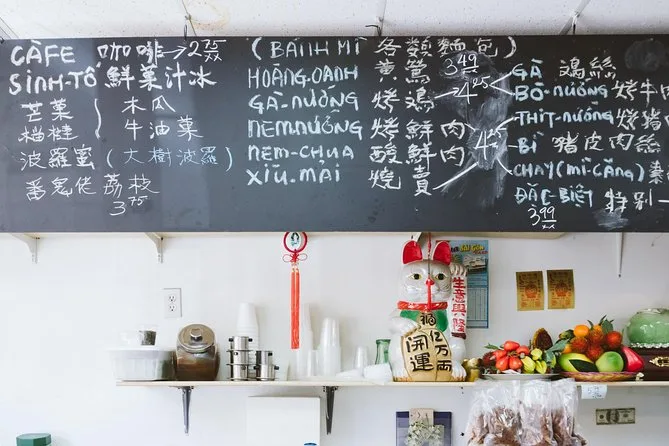 CÀFE 咖啡→2.75
SINH-TỐ 鮮菓汁冰
芒菓 木瓜
榴槤 牛油菓
波羅蜜 (大樹波羅)
番鬼佬荔枝
3.75
(BÁNH MÌ 各類麵包)
HOÀNG.OANH 黃鶯 3.49
GÀ-NƯỚNG 烤鴻 4.25
NEMNƯỚNG 烤鮮肉
NEM-CHUA 酸鮮肉
XÍU.MẠI 燒賣
4.25
GÀ 鴻絲
BÒ-NƯỚNG 烤牛肉
THỊT NƯỚNG 烤猪
BÌ 豬皮肉絲
CHAY (MÌ CĂNG)
ĐẶC-BIỆT 特别
3.99
福
開運
億万両
生意興隆
SÀI GÒN